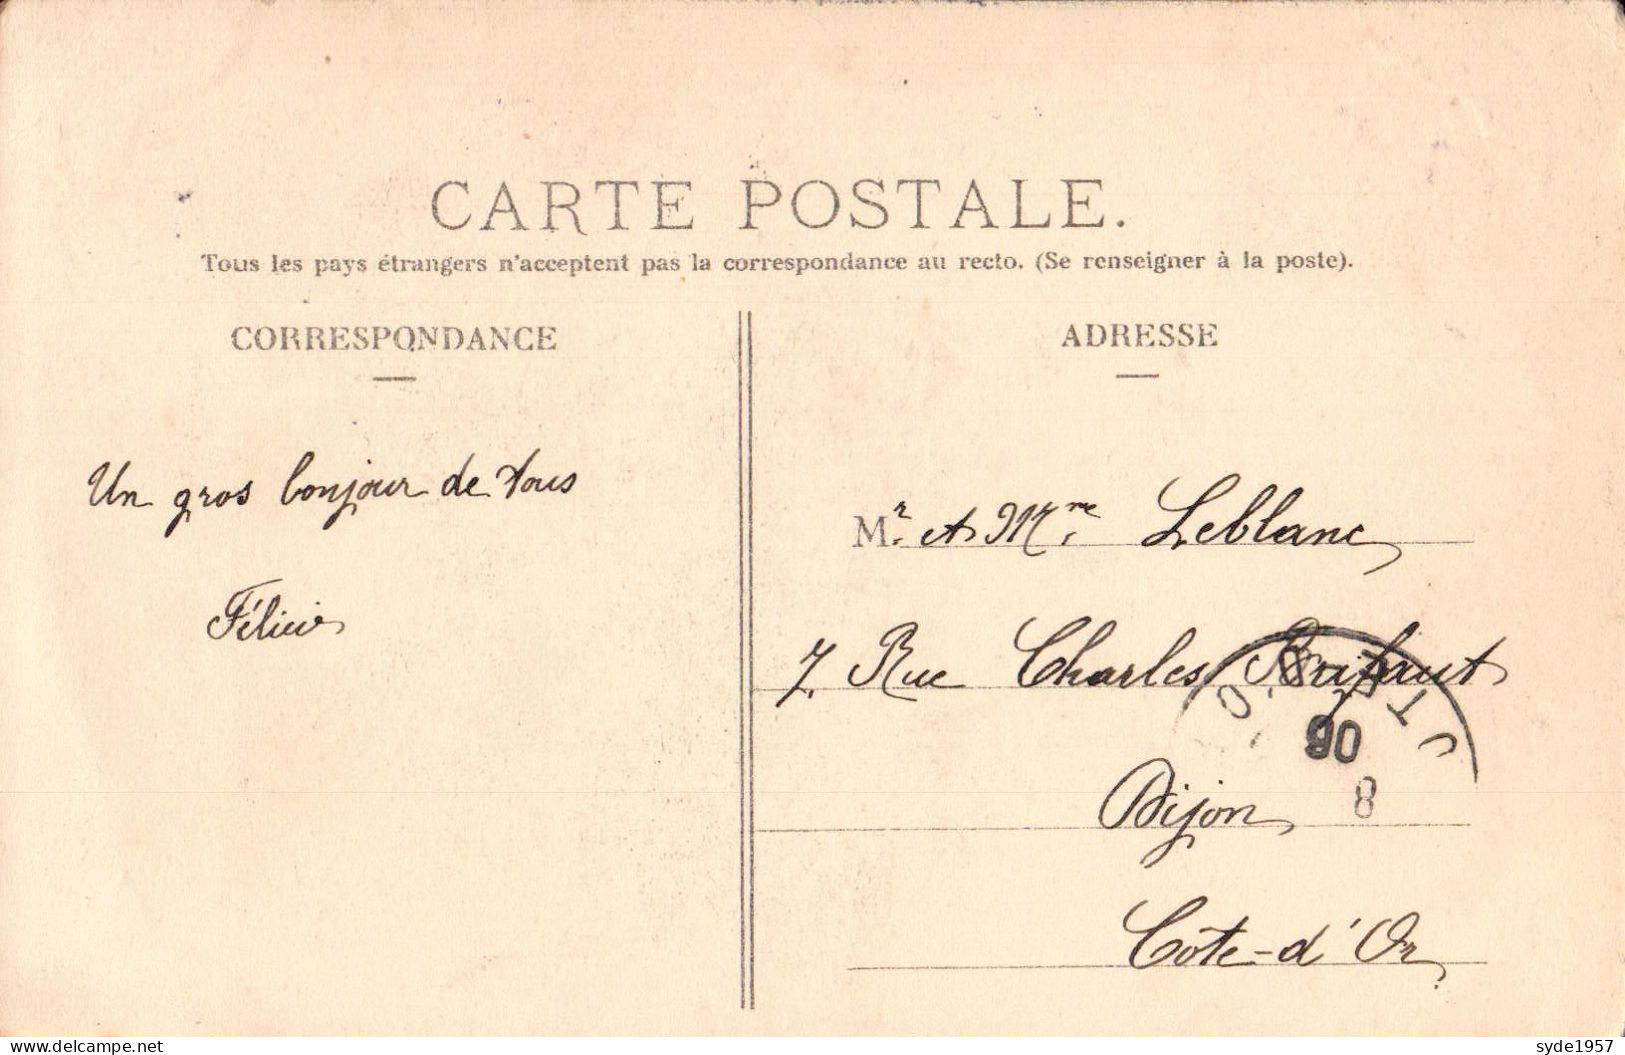 CARTE POSTALE.
Tous les pays étrangers n'acceptent pas la correspondance au recto. (Se renseigner à la poste).
CORRESPONDANCE
Un gros bonjour de tous
Félicie
ADRESSE
Mr. et Mme. Leblanc
7 Rue Charles
Dijon
Côte-d'Or
06
8
www.delcampe.net
syde1957